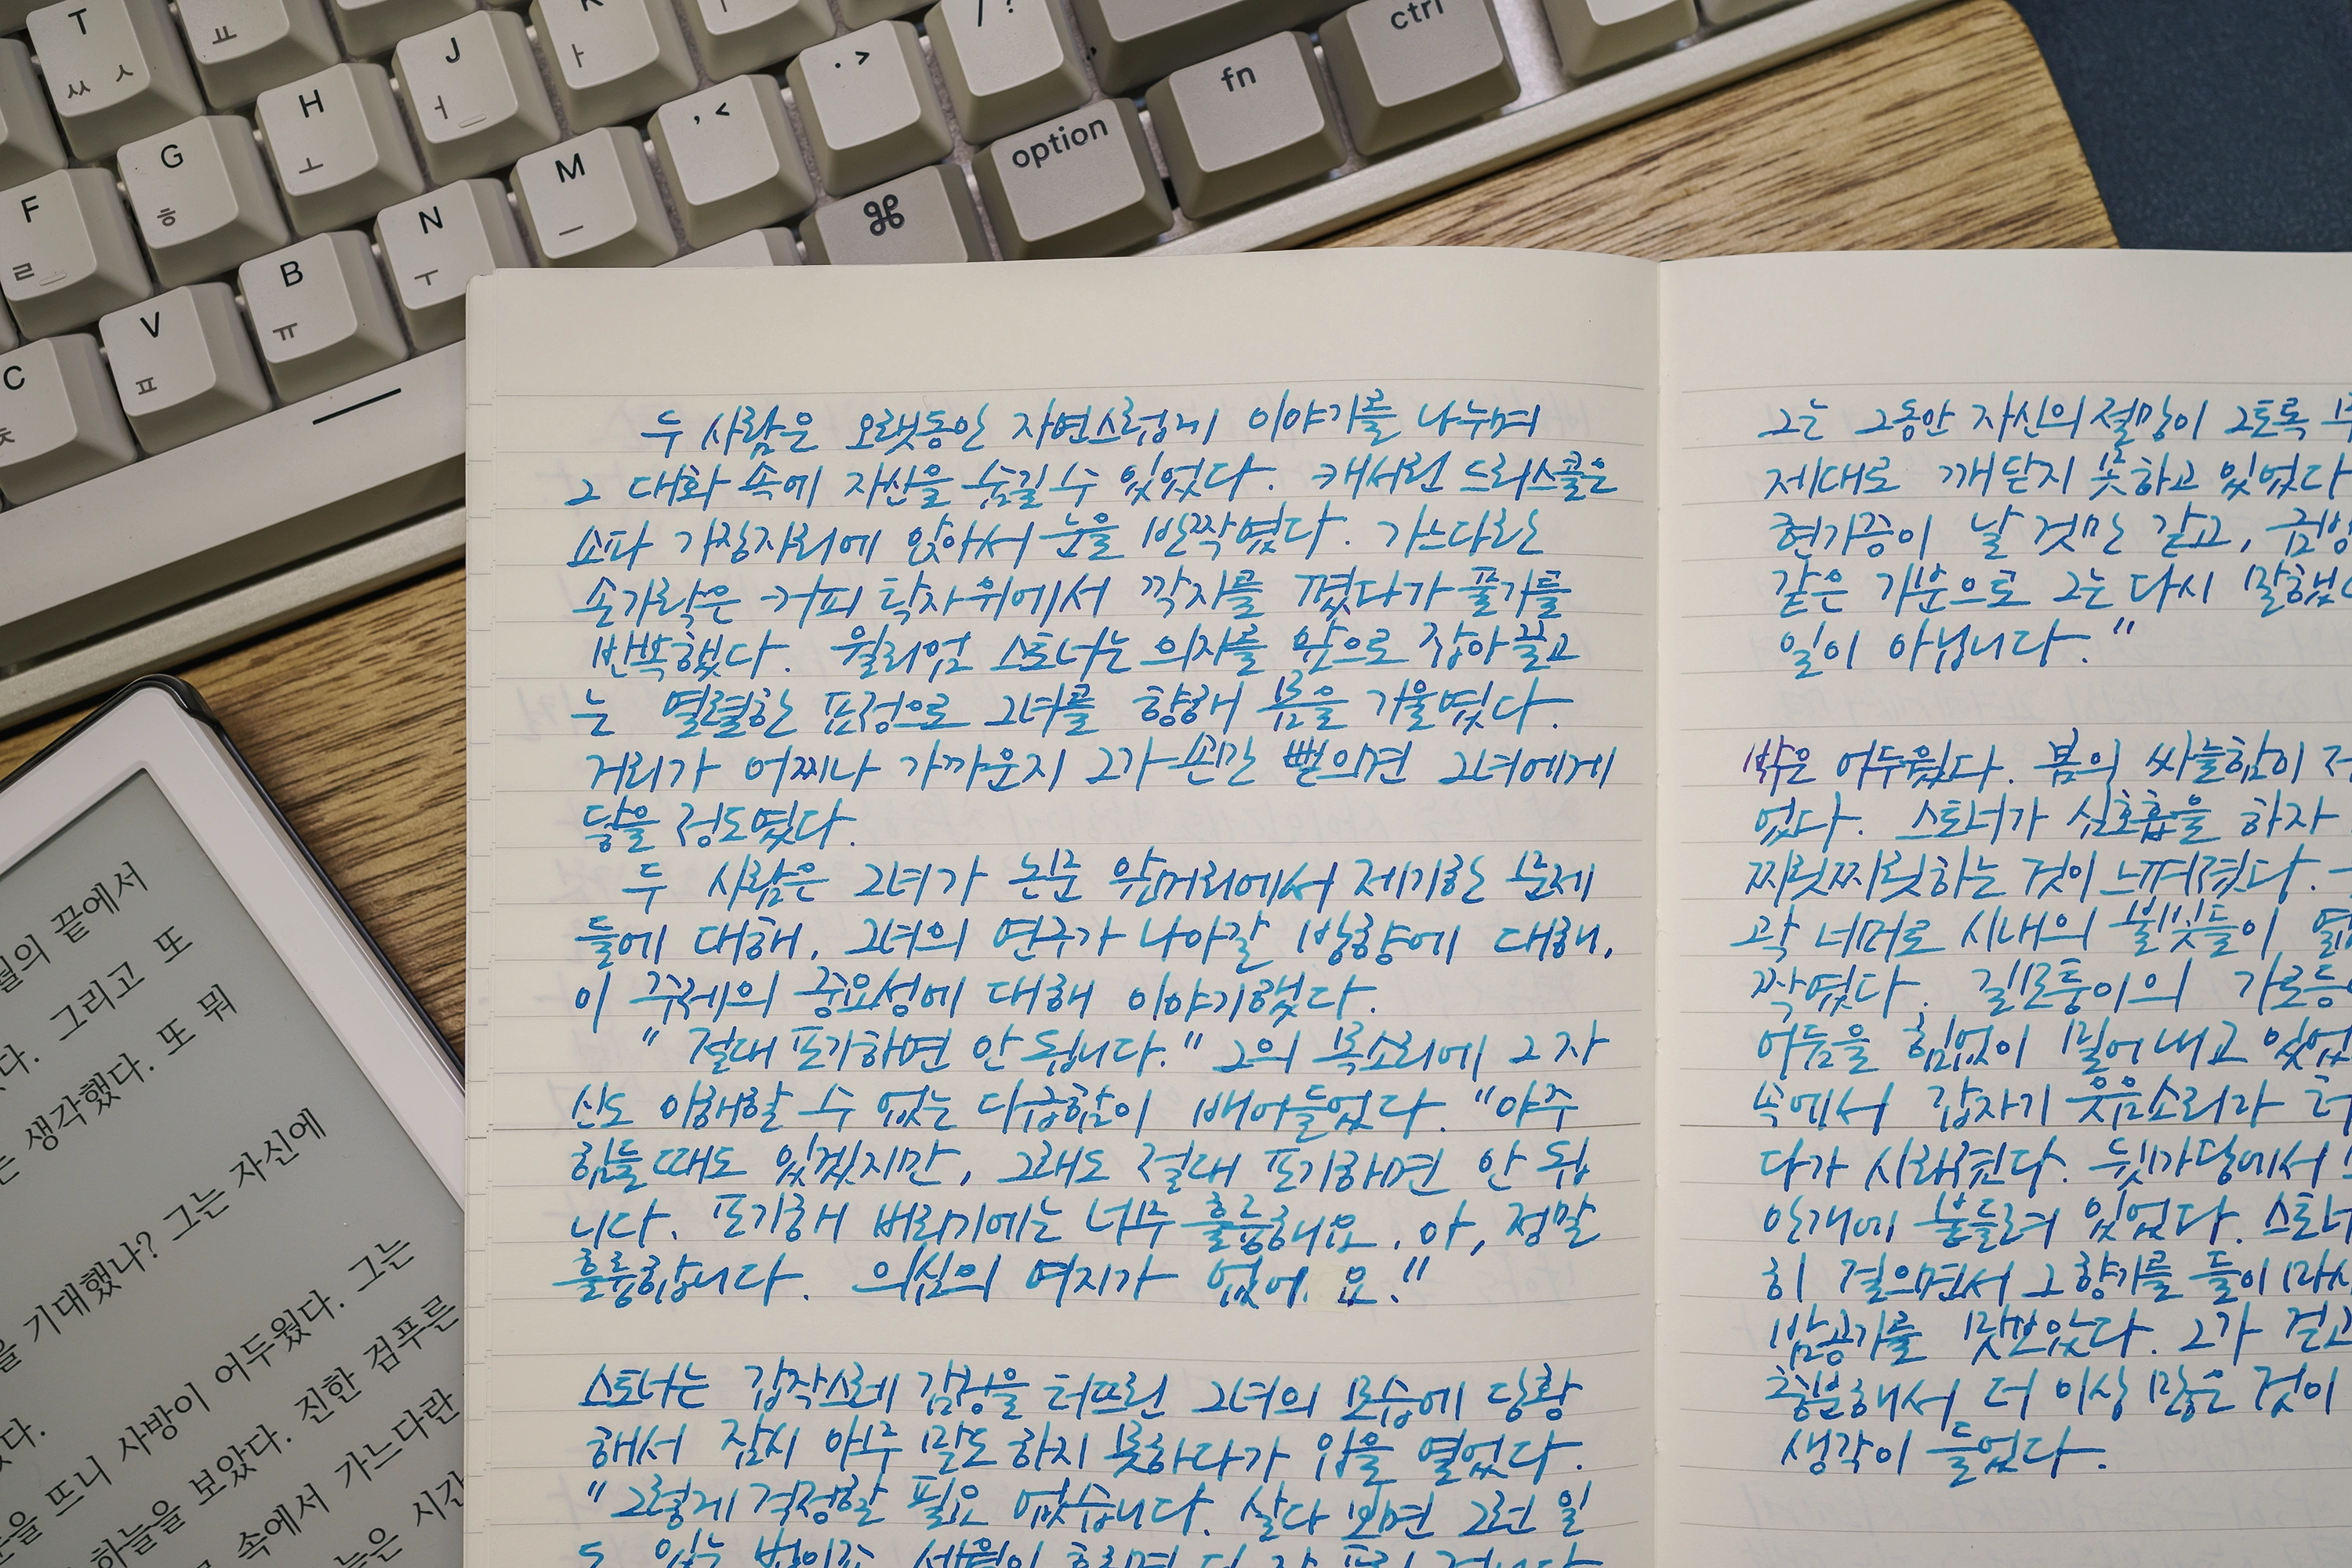 T
ㅆ ㅅ
ㅛ
J
ㅓ
K
ㅏ
/ ?
ctrl
H
ㅗ
. >
fn
G
ㅎ
M
ㅡ
, <
option
F
ㄹ
N
ㅜ
⌘
B
ㅠ
V
ㅍ
C
ㅊ
두 사람은 오랫동안 자연스럽게 이야기를 나누며
그 대화 속에 자신을 숨길 수 있었다. 캐서린 드리스콜은
소파 가장자리에 앉아서 눈을 반짝였다. 가느다란
손가락은 커피 탁자 위에서 깍지를 꼈다가 풀기를
반복했다. 윌리엄 스토너는 의자를 앞으로 잡아 끌고
는 열렬한 표정으로 그녀를 향해 몸을 기울였다.
거리가 어찌나 가까운지 그가 손만 뻗으면 그녀에게
닿을 정도였다.
두 사람은 그녀가 논문 앞머리에서 제기한 문제
들에 대해, 그녀의 연구가 나아갈 방향에 대해,
이 주제의 중요성에 대해 이야기했다.
" 절대 포기하면 안 됩니다." 그의 목소리에 그 자
신도 이해할 수 없는 다급함이 배어들었다. "아주
힘들 때도 있겠지만, 그래도 절대 포기하면 안 됩
니다. 포기해 버리기에는 너무 훌륭해요. 아, 정말
훌륭합니다. 의심의 여지가 없어요."
스토너는 갑작스레 감정을 터뜨린 그녀의 모습에 당황
해서 잠시 아무 말도 하지 못하다가 입을 열었다.
"그렇게 걱정할 필요 없습니다. 살다 보면 그런 일
도 있는 법이죠. 세월이 흐르면 다 잘 풀릴 겁니다
그는 그동안 자신의 절망이 그토록
제대로 깨닫지 못하고 있었다
현기증이 날 것만 같고, 금방
같은 기분으로 그는 다시 말했
일이 아닙니다."
밖은 어두웠다. 봄의 싸늘함이
었다. 스토너가 심호흡을 하자
찌릿찌릿하는 것이 느껴졌다.
곽 너머로 시내의 불빛들이
짝였다. 길모퉁이의 가로등
어둠을 힘없이 밀어내고 있었
속에서 갑자기 웃음소리가
다가 사라졌다. 뒷마당에서
안개에 붙들려 있었다. 스토너
히 걸으면서 그 향기를 들이마시
밤공기를 맛보았다. 그가 걷고
충분해서 더 이상 많은 것이
생각이 들었다.
월의 끝에서
다. 그리고 또
는 생각했다. 또 뭐
을 기대했나? 그는 자신에
다.
눈을 뜨니 사방이 어두웠다. 그는
하늘을 보았다. 진한 검푸른
속에서 가느다란
늘은 시간